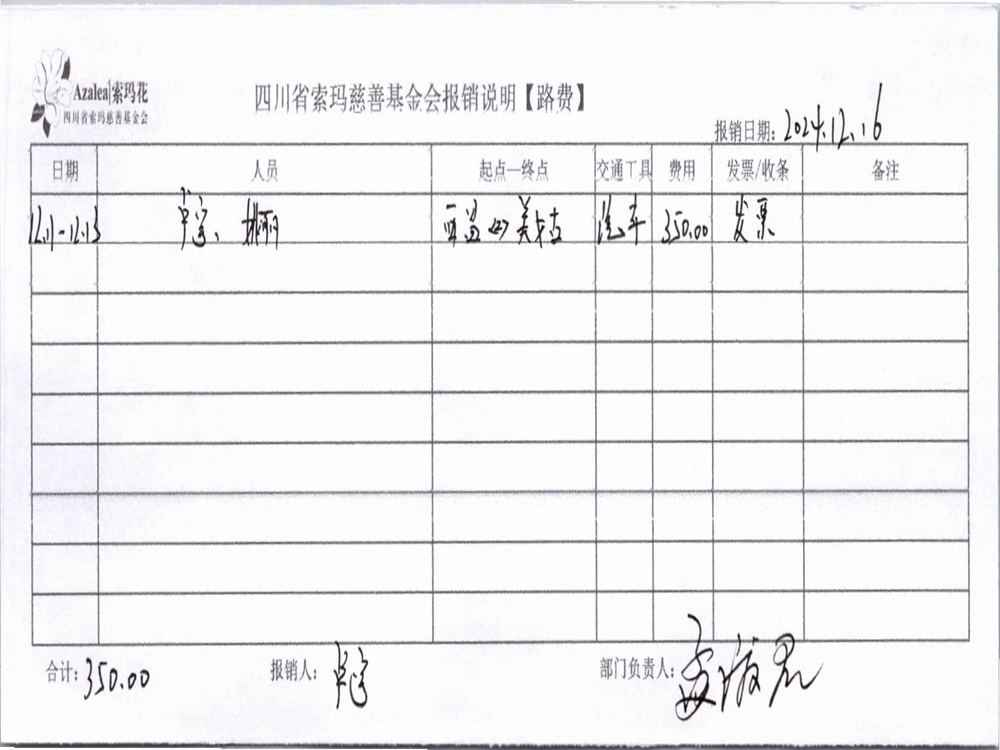 Azalea|索玛花
四川省索玛慈善基金会
四川省索玛慈善基金会报销说明【路费】
报销日期: 2024.12.16
日期 人员 起点—终点 交通工具 费用 发票/收条 备注
12.11-12.13 美姑 汽车 350.00 发票
合计: 350.00 报销人: 部门负责人: